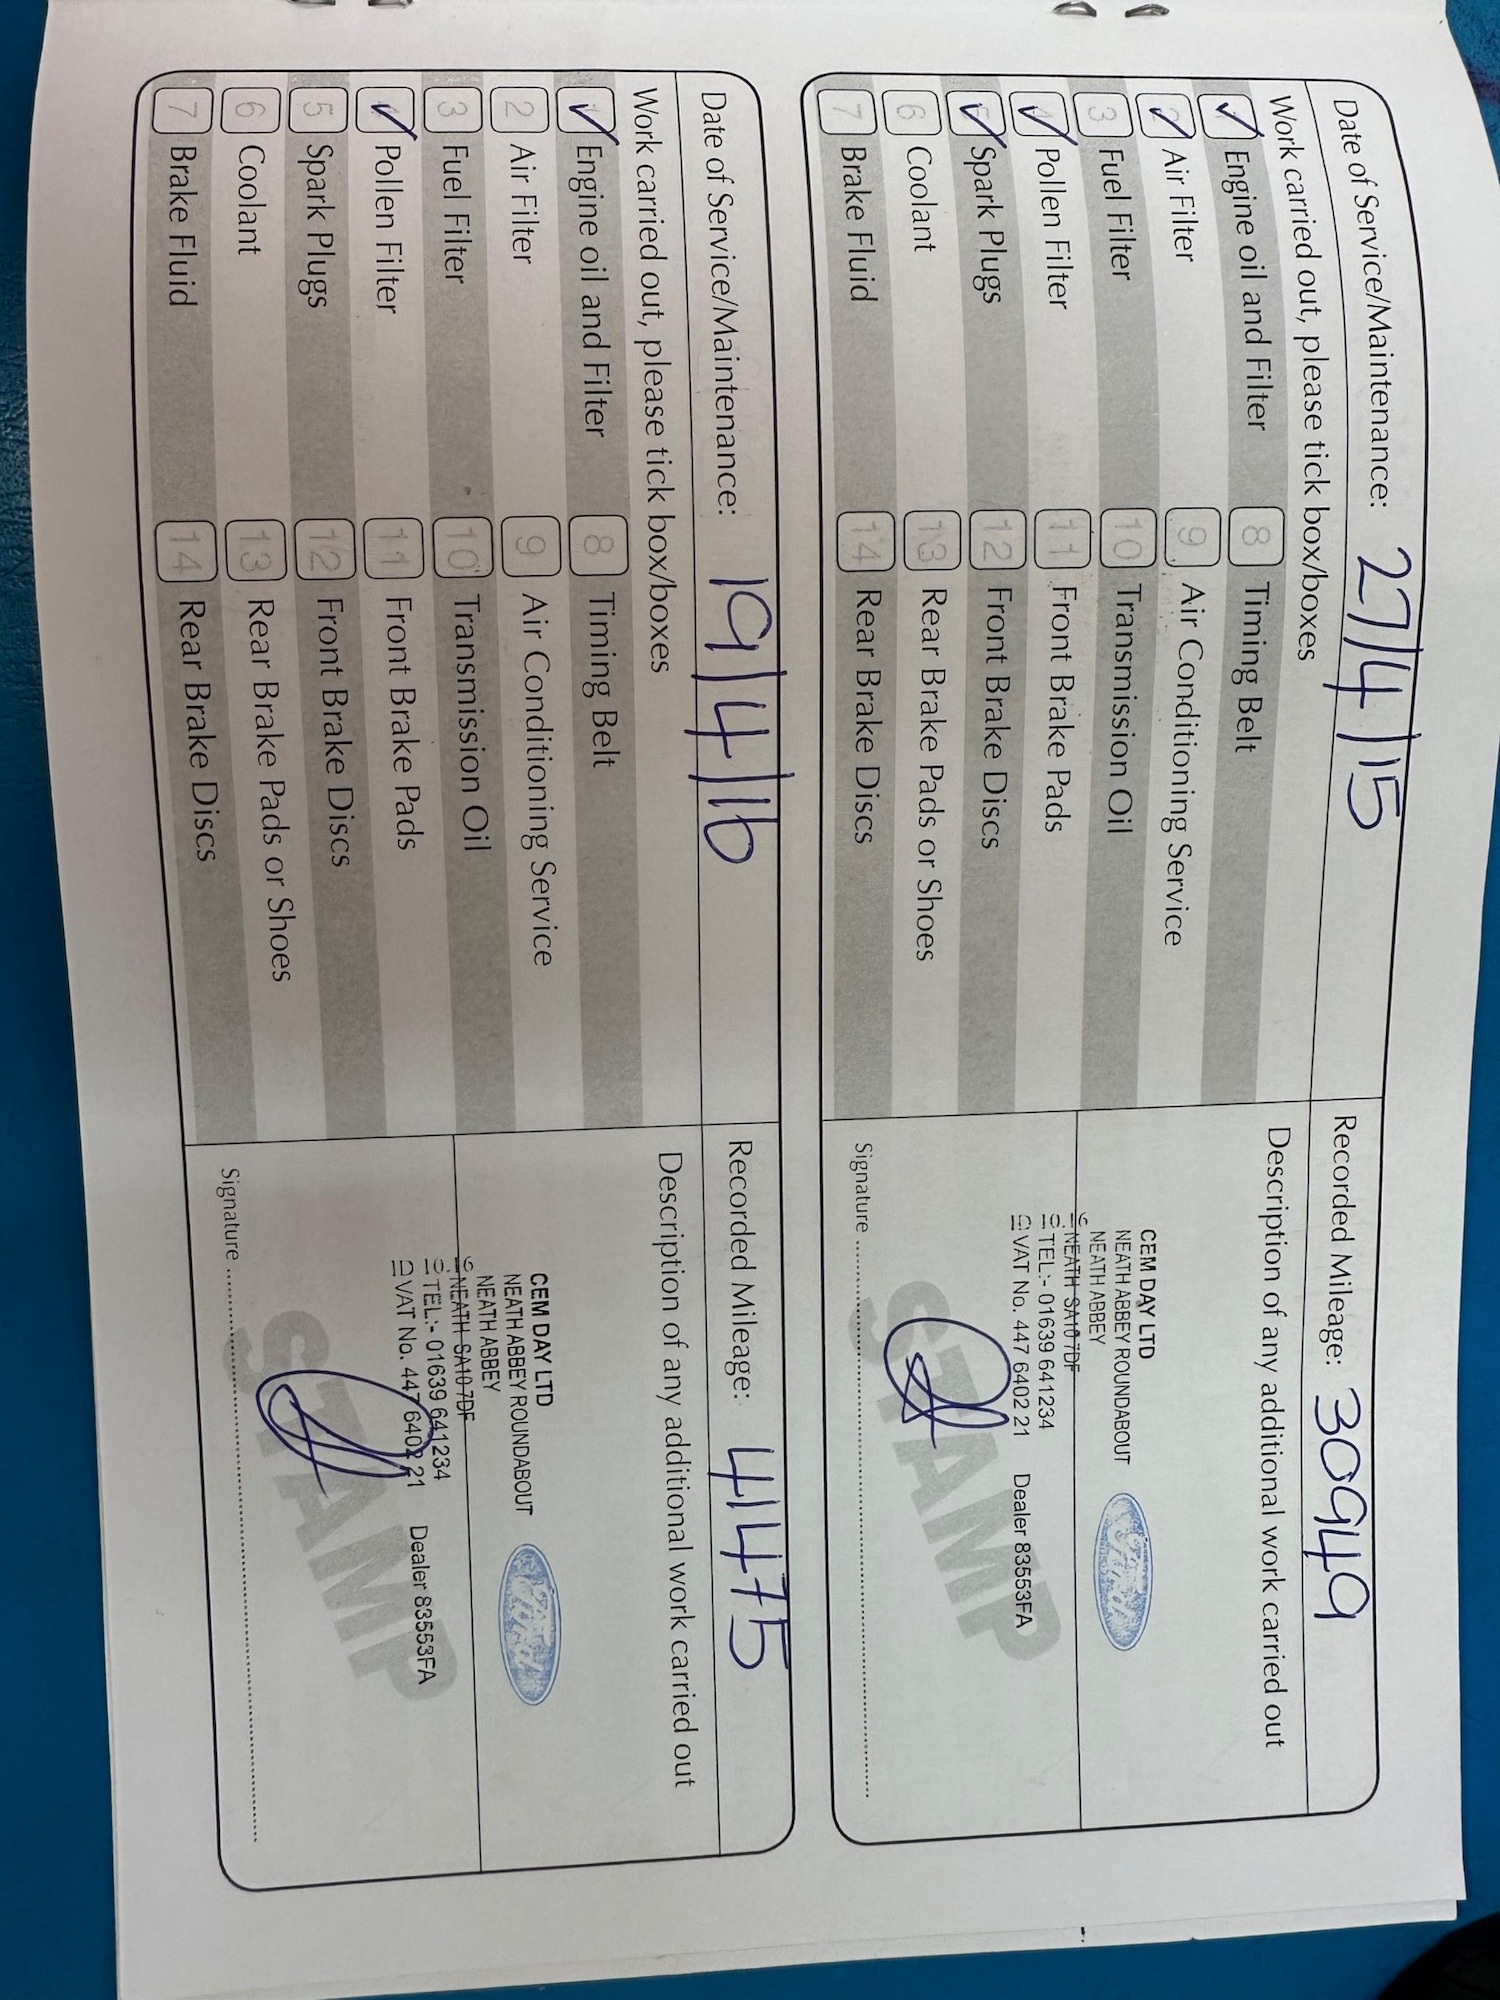 Date of Service/Maintenance: 27/4/15
Recorded Mileage: 30949
Work carried out, please tick box/boxes
Description of any additional work carried out
1 ✓ Engine oil and Filter
8 Timing Belt
2 ✓ Air Filter
9 Air Conditioning Service
3 Fuel Filter
10 Transmission Oil
4 ✓ Pollen Filter
11 Front Brake Pads
5 ✓ Spark Plugs
12 Front Brake Discs
6 Coolant
13 Rear Brake Pads or Shoes
7 Brake Fluid
14 Rear Brake Discs
CEM DAY LTD
NEATH ABBEY ROUNDABOUT
NEATH ABBEY
NEATH SA10 7DF
TEL:- 01639 641234
VAT No. 447 6402 21 Dealer 83553FA
Ford
STAMP
Signature
Date of Service/Maintenance: 19/4/16
Recorded Mileage: 41475
Work carried out, please tick box/boxes
Description of any additional work carried out
1 ✓ Engine oil and Filter
8 Timing Belt
2 Air Filter
9 Air Conditioning Service
3 Fuel Filter
10 Transmission Oil
4 ✓ Pollen Filter
11 Front Brake Pads
5 Spark Plugs
12 Front Brake Discs
6 Coolant
13 Rear Brake Pads or Shoes
7 Brake Fluid
14 Rear Brake Discs
CEM DAY LTD
NEATH ABBEY ROUNDABOUT
NEATH ABBEY
NEATH SA10 7DF
TEL:- 01639 641234
VAT No. 447 6402 21 Dealer 83553FA
Ford
STAMP
Signature